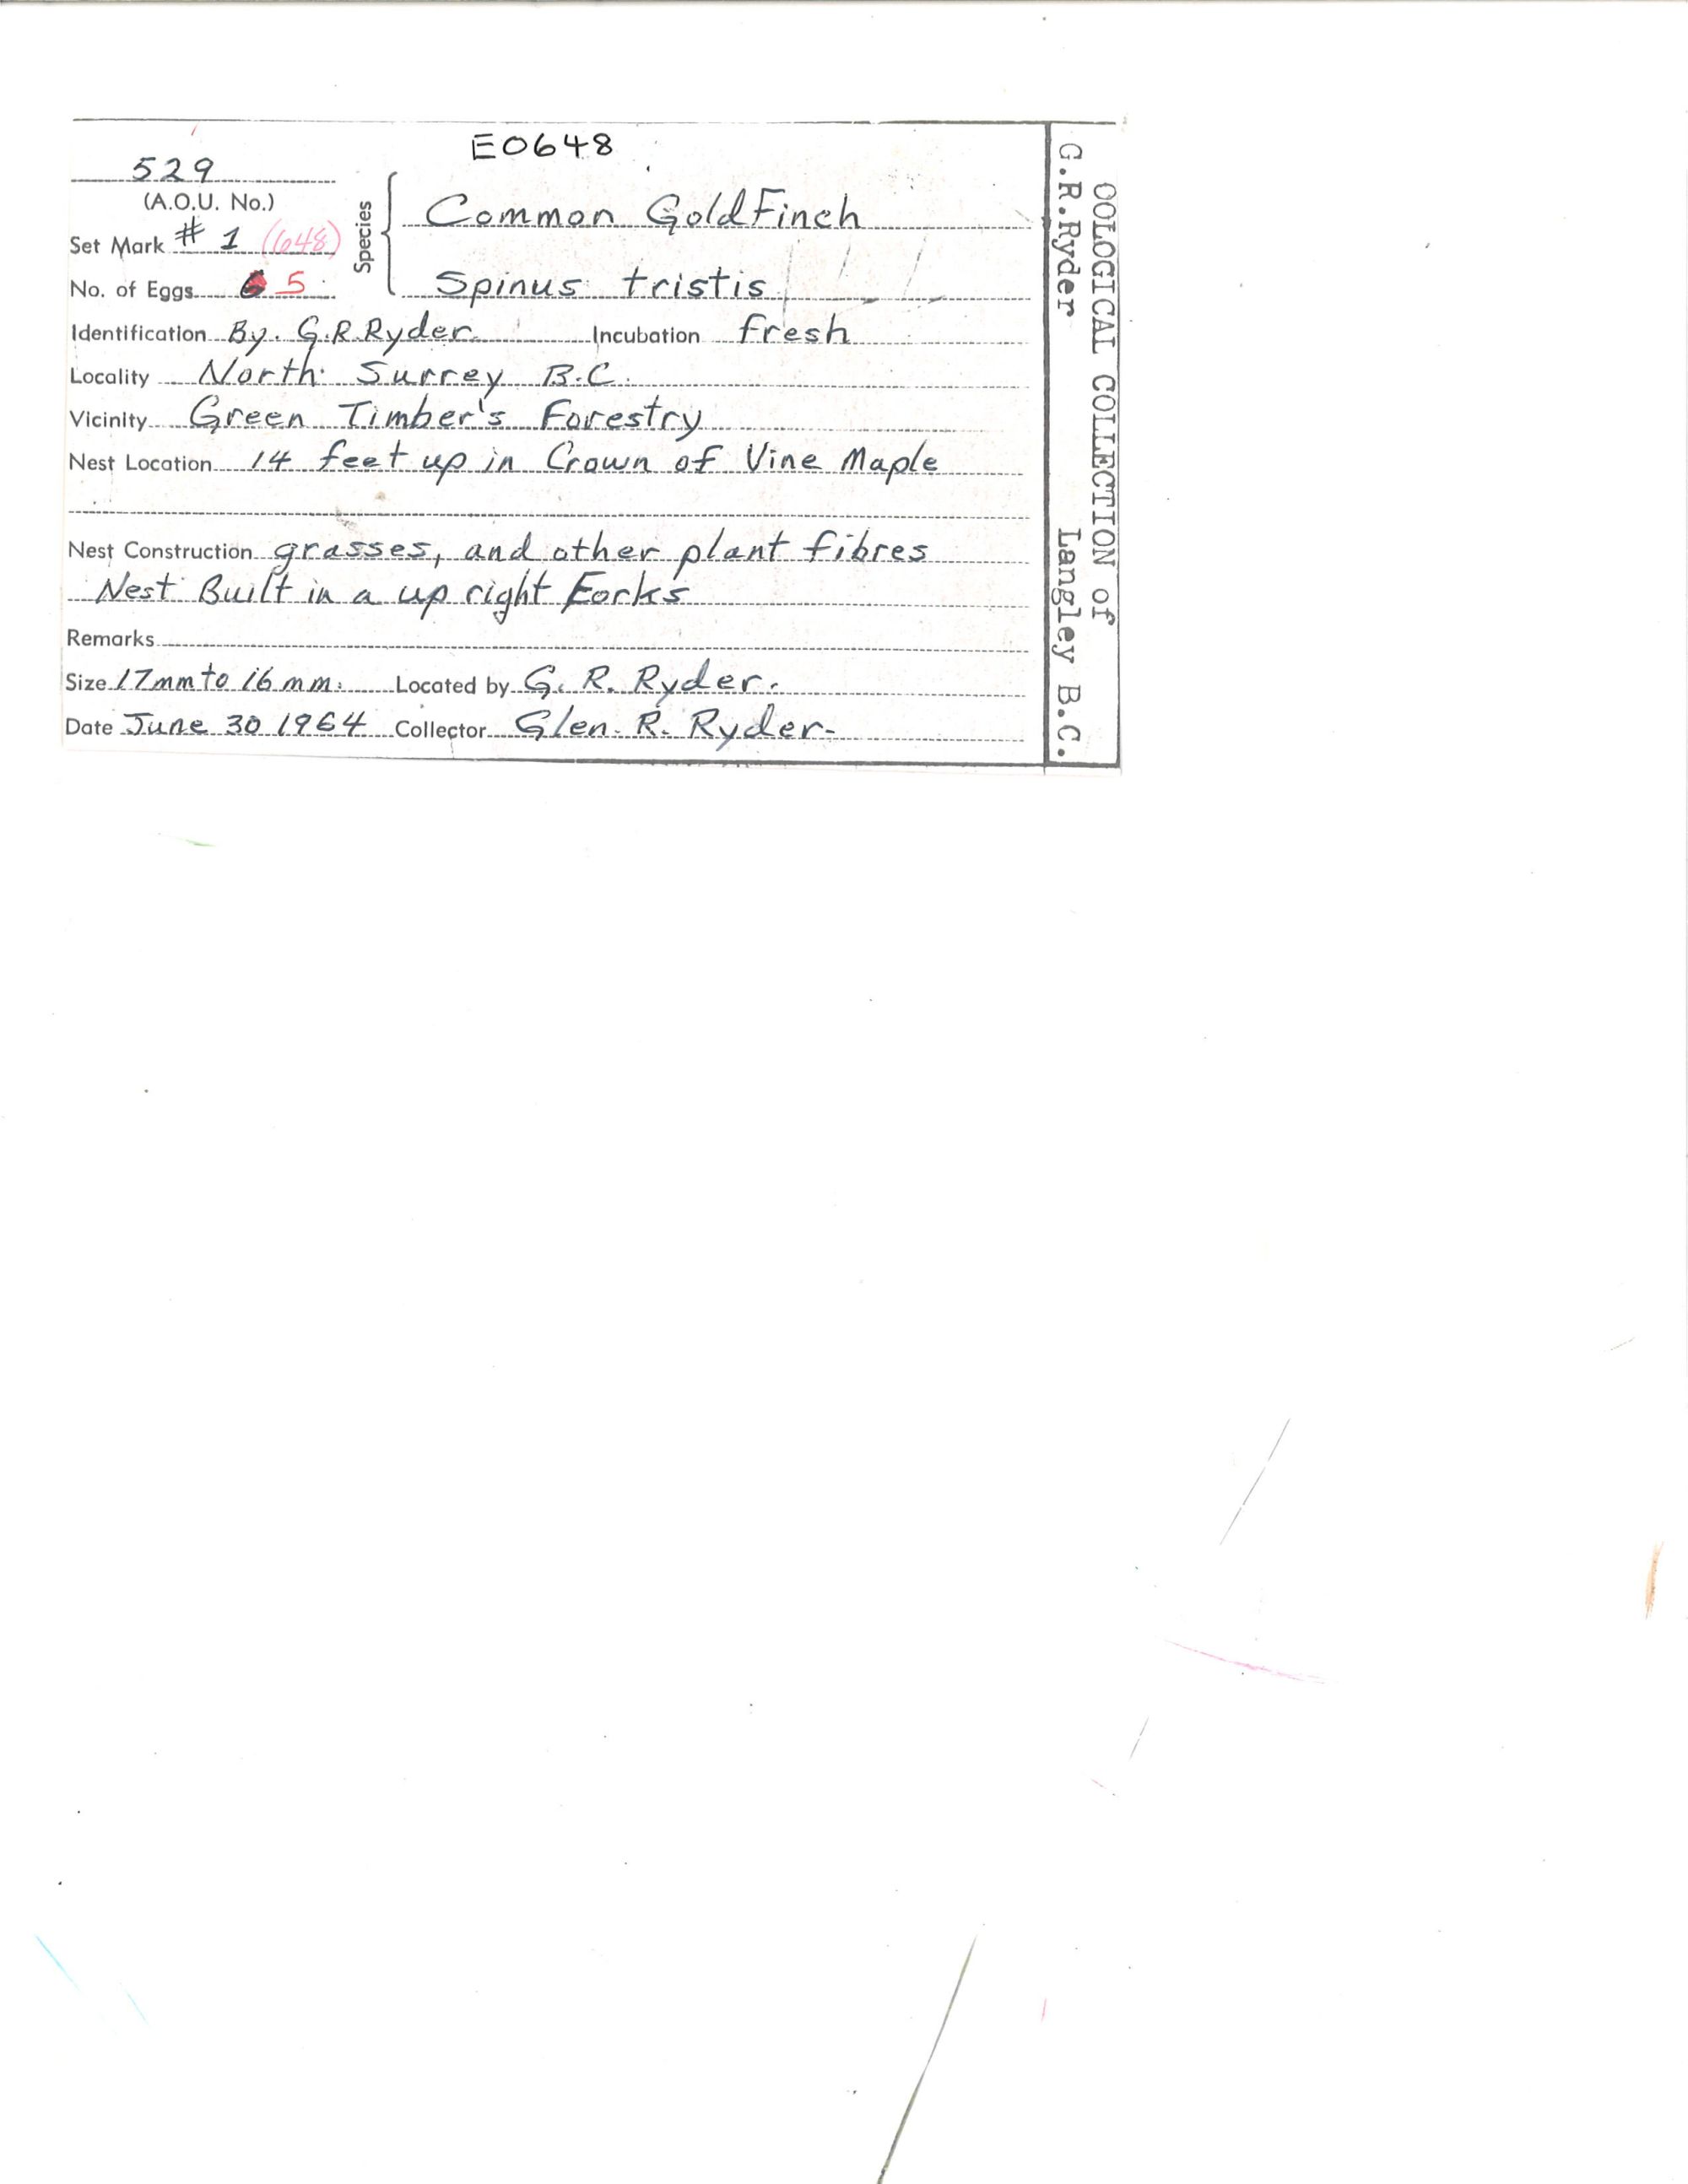 E0648
529
(A.O.U. No.)
Set Mark # 1 (648)
No. of Eggs 6 5
Species
Common GoldFinch
Spinus tristis
Identification By. G.R.Ryder Incubation fresh
Locality North Surrey B.C.
Vicinity Green Timber's Forestry
Nest Location 14 feet up in Crown of Vine Maple
Nest Construction grasses, and other plant fibres
Nest Built in a up right Forks
Remarks
Size 17mm to 16 mm. Located by G. R. Ryder.
Date June 30 1964 Collector Glen. R. Ryder-
OOLOGICAL COLLECTION of
G.R.Ryder Langley B.C.